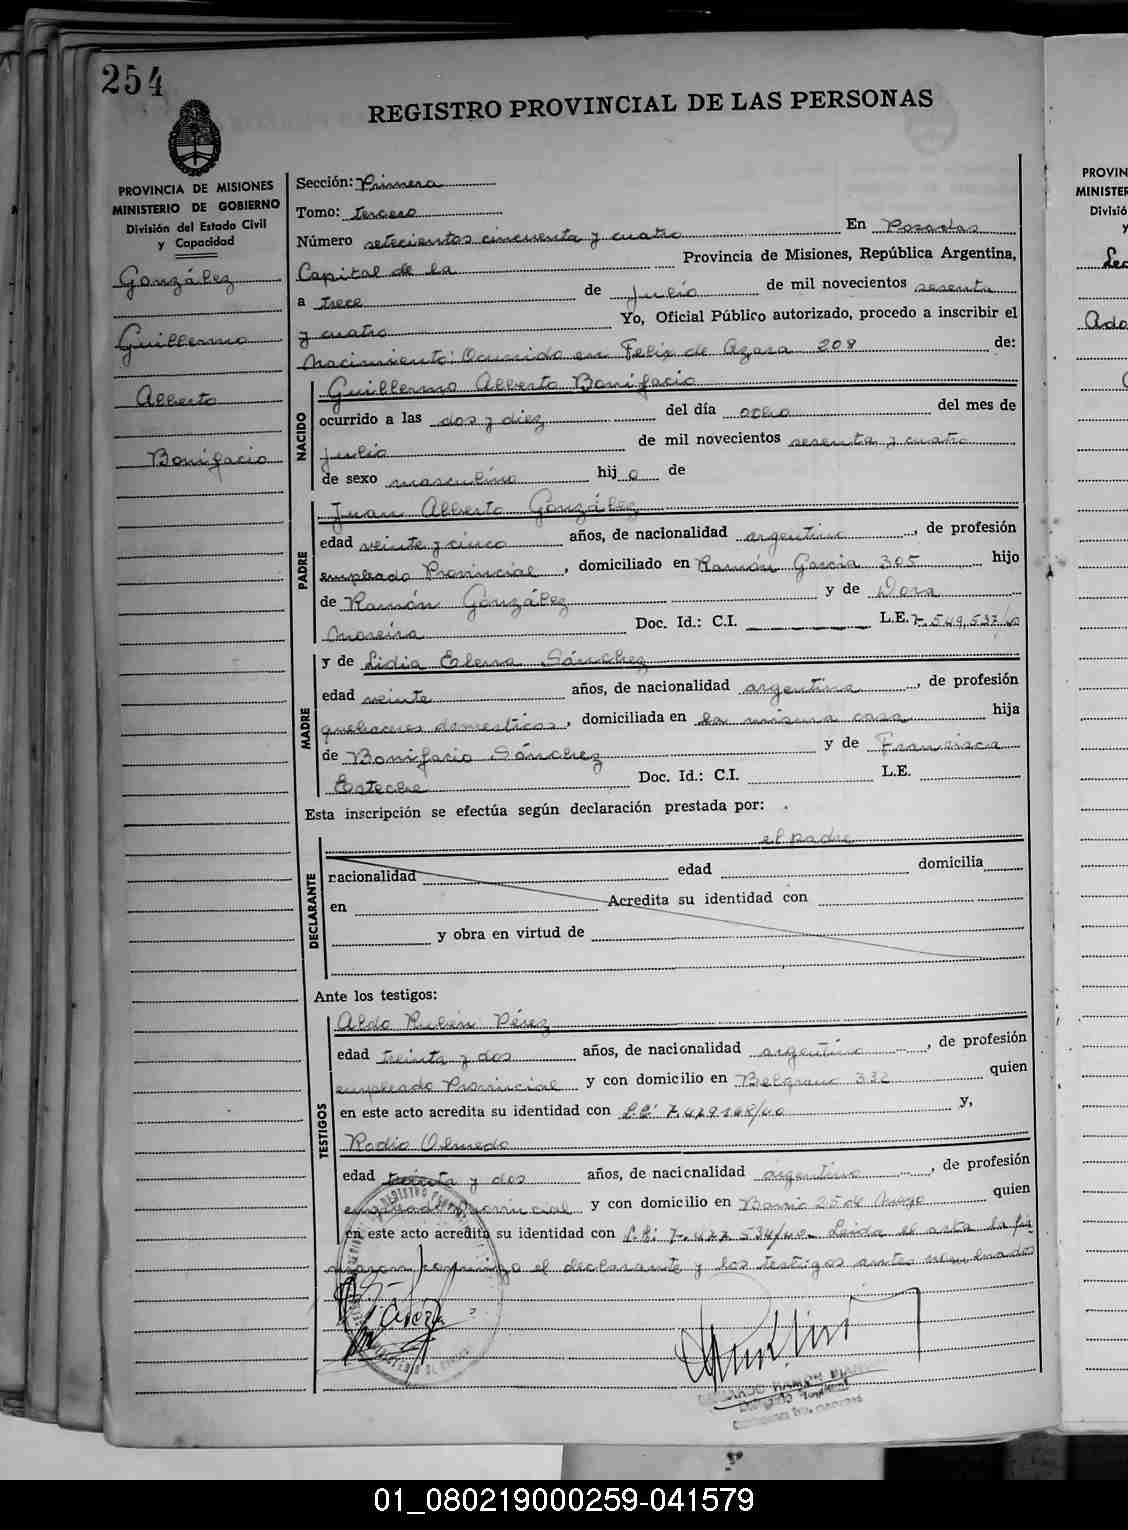 254
REGISTRO PROVINCIAL DE LAS PERSONAS
PROVINCIA DE MISIONES
MINISTERIO DE GOBIERNO
División del Estado Civil
y Capacidad
González
Guillermo
Alberto
Bonifacio
Sección: Primera
Tomo: tercero
Número setecientos cincuenta y cuatro En Posadas
Capital de la Provincia de Misiones, República Argentina,
a trece de Julio de mil novecientos sesenta
y cuatro Yo, Oficial Público autorizado, procedo a inscribir el
nacimiento: Ocurrido en Felix de Azara 208 de:
NACIDO
Guillermo Alberto Bonifacio
ocurrido a las dos y diez del día ocho del mes de
julio de mil novecientos sesenta y cuatro
de sexo masculino hij o de
PADRE
Juan Alberto González
edad veinte y cinco años, de nacionalidad argentino, de profesión
empleado Provincial, domiciliado en Ramón Garcia 305 hijo
de Ramón González y de Dora
Moreira Doc. Id.: C.I. L.E. 7.549.537/
MADRE
y de Lidia Elena Sánchez
edad veinte años, de nacionalidad argentina, de profesión
quehaceres domesticos, domiciliada en la misma casa hija
de Bonifacio Sánchez y de Francisca
Esteche Doc. Id.: C.I. L.E.
Esta inscripción se efectúa según declaración prestada por:
el padre
DECLARANTE
nacionalidad edad domicilia
en Acredita su identidad con
y obra en virtud de
Ante los testigos:
TESTIGOS
Aldo Rubén Pérez
edad treinta y dos años, de nacionalidad argentino, de profesión
empleado Provincial y con domicilio en Belgrano 332 quien
en este acto acredita su identidad con L.E: 7.479.168/40 y,
Rodio Olmedo
edad treinta y dos años, de nacionalidad argentino, de profesión
empleado Provincial y con domicilio en Barrio 25 de Mayo quien
en este acto acredita su identidad con L.E: 7.477.534/40. Leida el acta la fir
maron conmigo el declarante y los testigos antes nombrados
PROVIN
MINISTER
Divisió
y
01_080219000259-041579